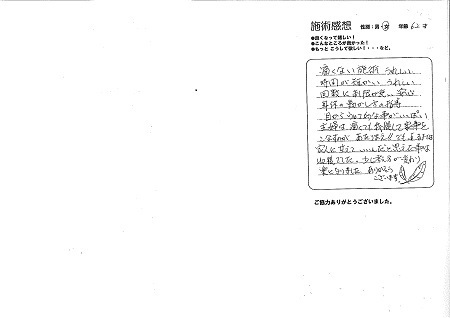 施術感想 性別：男・女 年齢 62才
●良くなって嬉しい！
●こんなところが良かった！
●もっと こうして欲しい！・・・など。
痛くない施術 うれしい
時間が短かい うれしい
回数に 安心
身体の動かし方の指導
目からうろこ的な事がいっぱい
主婦は 痛くても我慢して家事を
こなすのが あたりまえ!!
人に甘えて いいんだと思えた事は
収穫でした。少し考えが変わり
楽になりました ありがとう
ございます
ご協力ありがとうございました。